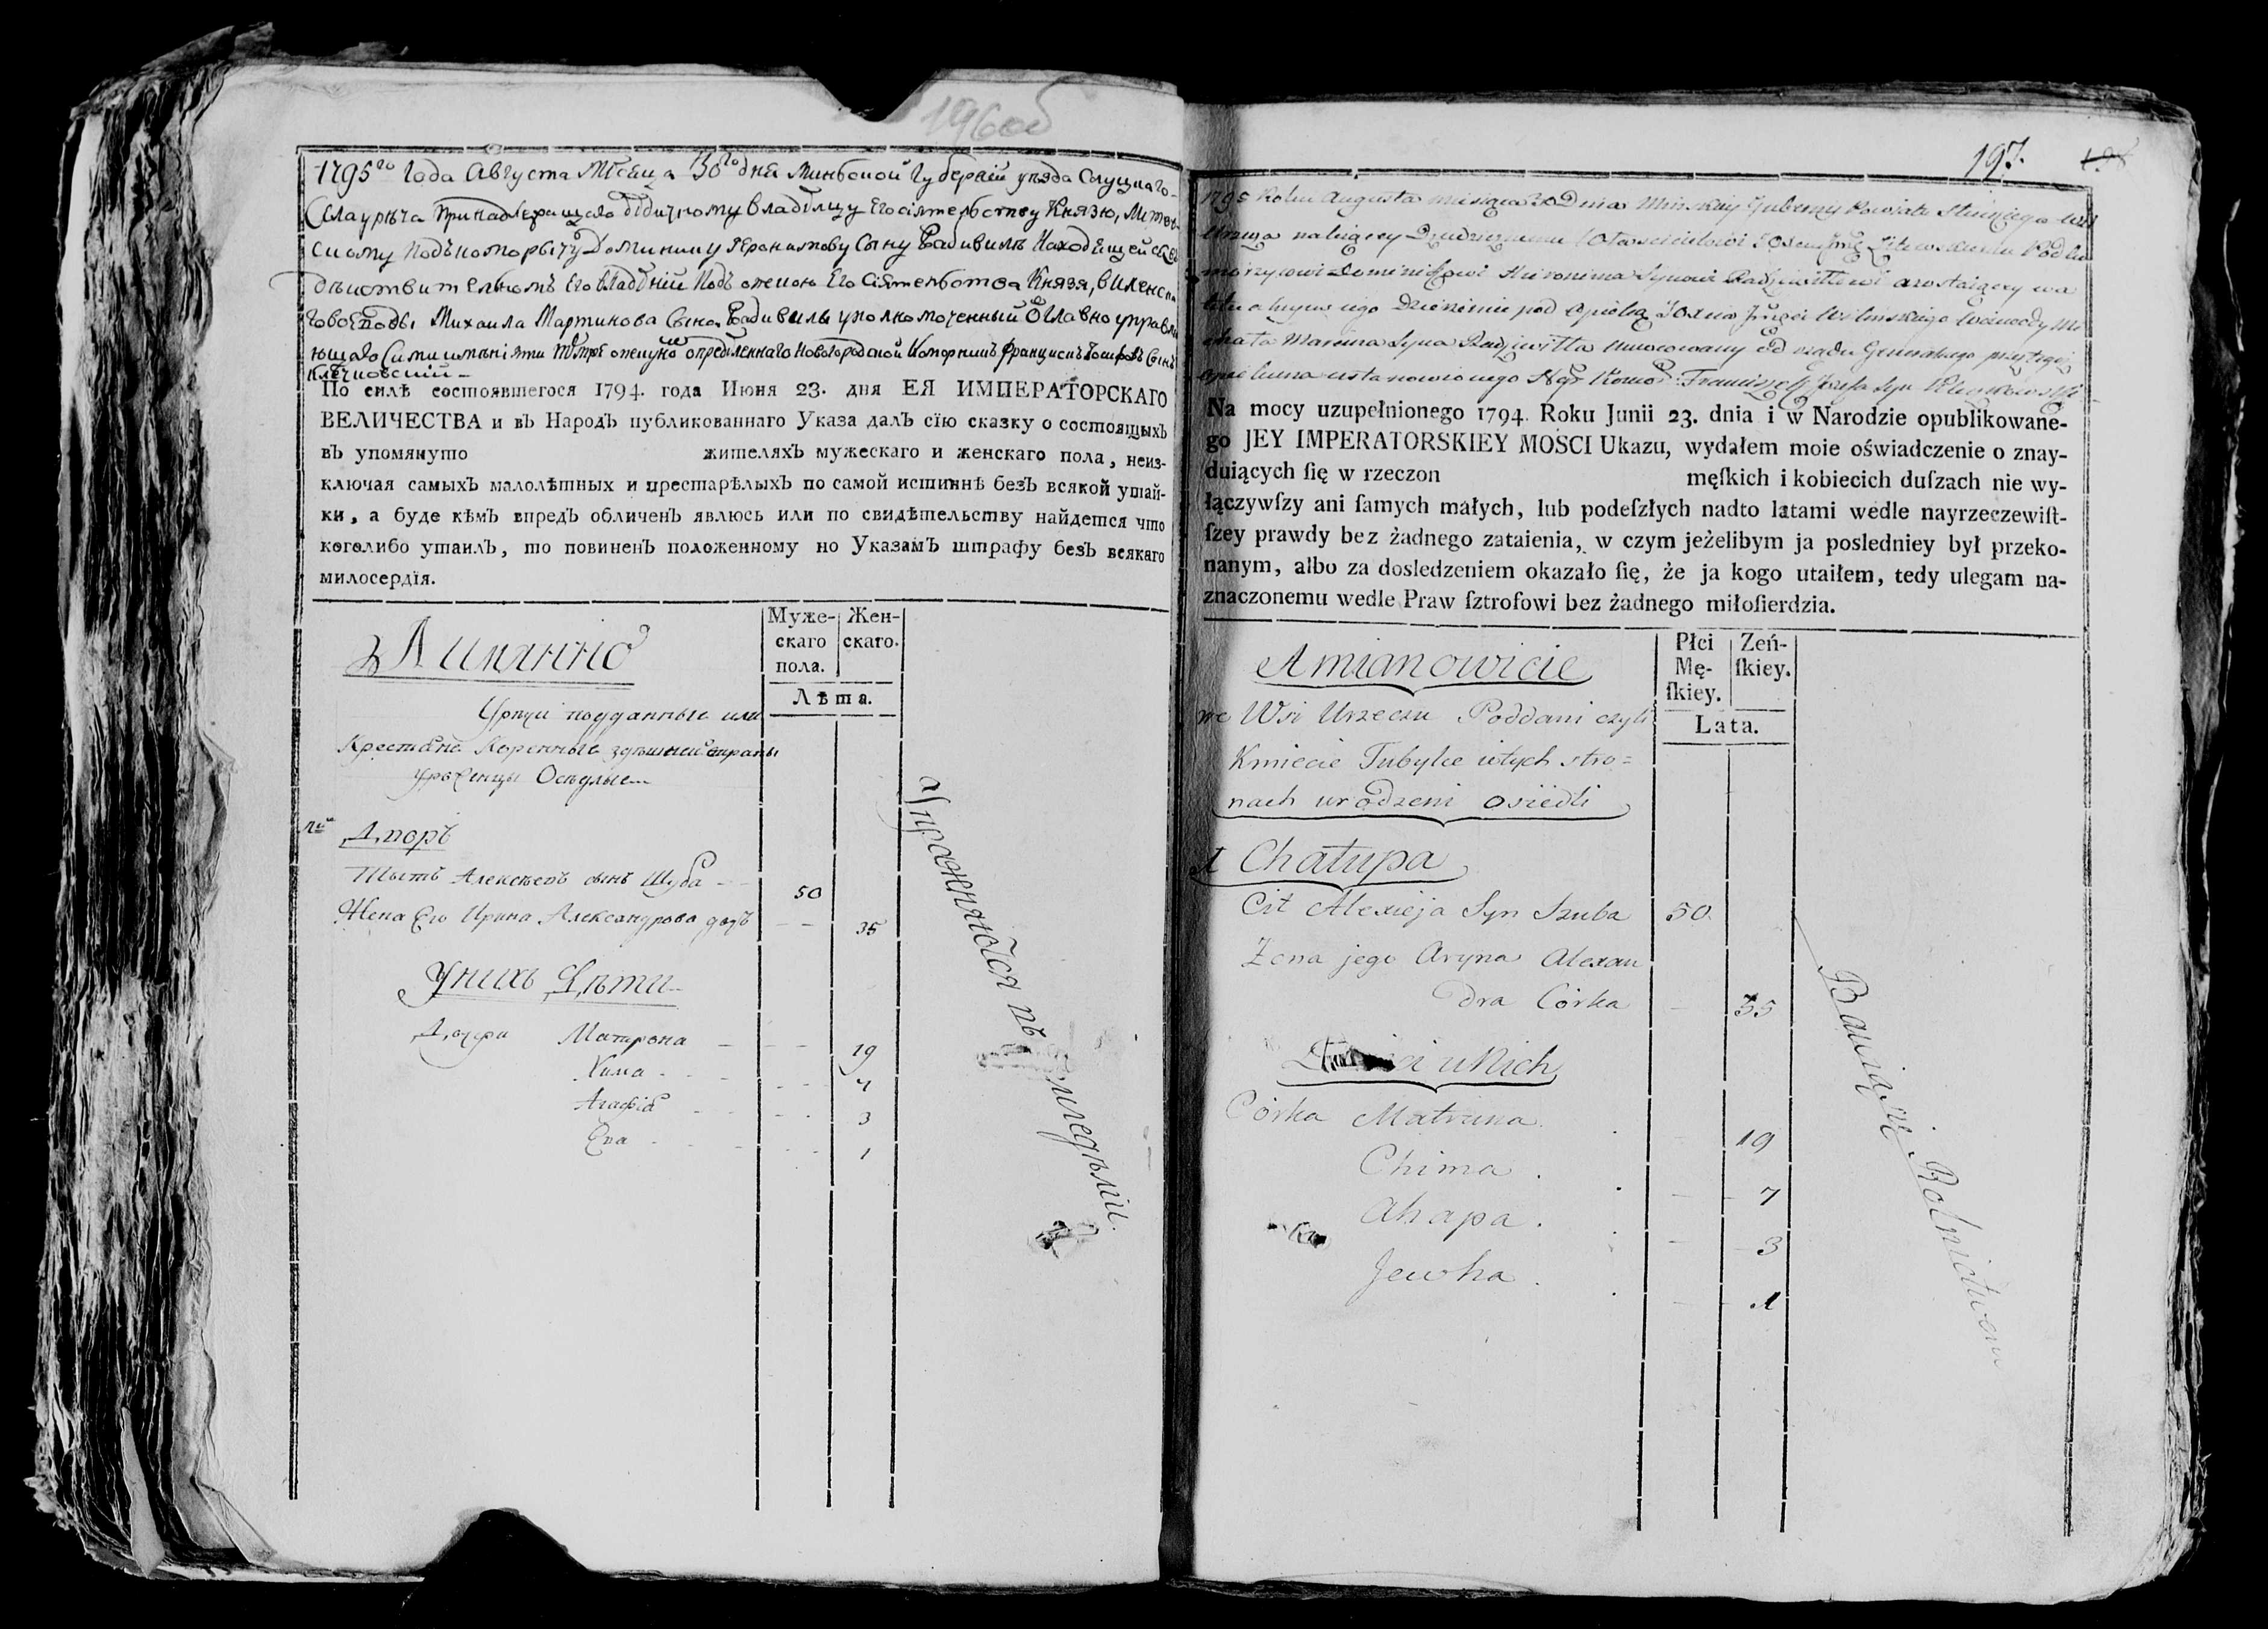 196об
1795го Года Августа Мѣсяца 30го дня Минской Губерніи уѣзда Слуцкаго
Села урѣча принадлежащаго дѣдичному владѣлцу Его сіятельству Князю, Литов-
скому Подъкоморычу Доминику Іеронимову Сыну Радивилъ Находящейся въ
дѣиствителномъ Его владѣніи Подъ опекою Его Сіятельства Князя, виленска
говоеводы Михаила Мартинова Сына Радивила уполномоченный Главно управля
ющаго Сими имѣніями опекуна опредѣленнаго Новогородской Коморникъ францискъ Іосифовъ Сынъ
Клечковскій
По силѣ состоявшегося 1794. года Июня 23. дня ЕЯ ИМПЕРАТОРСКАГО
ВЕЛИЧЕСТВА и въ Народъ публикованнаго Указа далъ сїю сказку о состоящыхъ
въ упомянуто жителяхъ мужескаго и женскаго пола, неиз-
ключая самыхъ малолѣтных и престарѣлыхъ по самой истиннѣ безъ всякой утай-
ки, а буде кѣмъ впредъ обличенъ явлюсь или по свидѣтельству найдется что
коголибо утаилъ, то повиненъ положенному по Указамъ штрафу безъ всякаго
милосердїя.
Муже- Жен-
скаго скаго.
пола.
Лѣта.
А имянно
Урѣчи подданные или
Крестьяне Коренные здѣшней страны
уроженцы Оседлые
1й Дворъ
Тытъ Алексѣевъ сынъ Шуба 50
Жена Его Ирина Александрова дочь 35
Унихъ Дѣти
Дочери Матрона 19
Хима 7
Агафія 3
Ева 1
Упражняются въ земледѣліи.
197.
1795 Roku Augusta miesiąca 30 Dnia Minskiey Gubernij Powiatu Słuckiego wsi
Urzecza należącey Dziedzicznemu Własścicielowi JOXciu Jmć Litewskiemu Podko
morzycowi Dominikowi Hieronima Synowi Radziwiłłowi a zostaiącey wa
ktualnym iego Dzierzeniu pod Opieką JOXcia Jmci Wileńskiego Woiewody Mi
chała Marcina Syna Radziwiłła Umocowany od rządu Generalnego przez tegoż
opiekuna ustanowionego Franciszek Jozefa Syn Kleczkowski
Na mocy uzupełnionego 1794. Roku Junii 23. dnia i w Narodzie opublikowane-
go JEY IMPERATORSKIEY MOSCI Ukazu, wydałem moie oświadczenie o znay-
duiących ſię w rzeczon męſkich i kobiecich duſzach nie wy-
łączywſzy ani ſamych małych, lub podeſzłych nadto latami wedle nayrzeczewiſt-
ſzey prawdy bez żadnego zataienia, w czym jeżelibym ja posledniey był przeko-
nanym, albo za dosledzeniem okazało ſię, że ja kogo utaiłem, tedy ulegam na-
znaczonemu wedle Praw ſztrofowi bez żadnego miłoſierdzia.
Płci Zeń-
Mę- ſkiey.
ſkiey.
Lata.
A mianowicie
we Wsi Urzeczu Poddani czyli
Kmiecie Tubylce wtych stro=
nach urodzeni osiedli
1 Chałupa
Cit Alexieja Syn Szuba 50
Zona jego Aryna Alexan
dra Córka 35
Dzieci u Nich
Córka Matruna 19
Chima 7
Ahapa 3
Jewha 1
Bawią się Rolnictwem